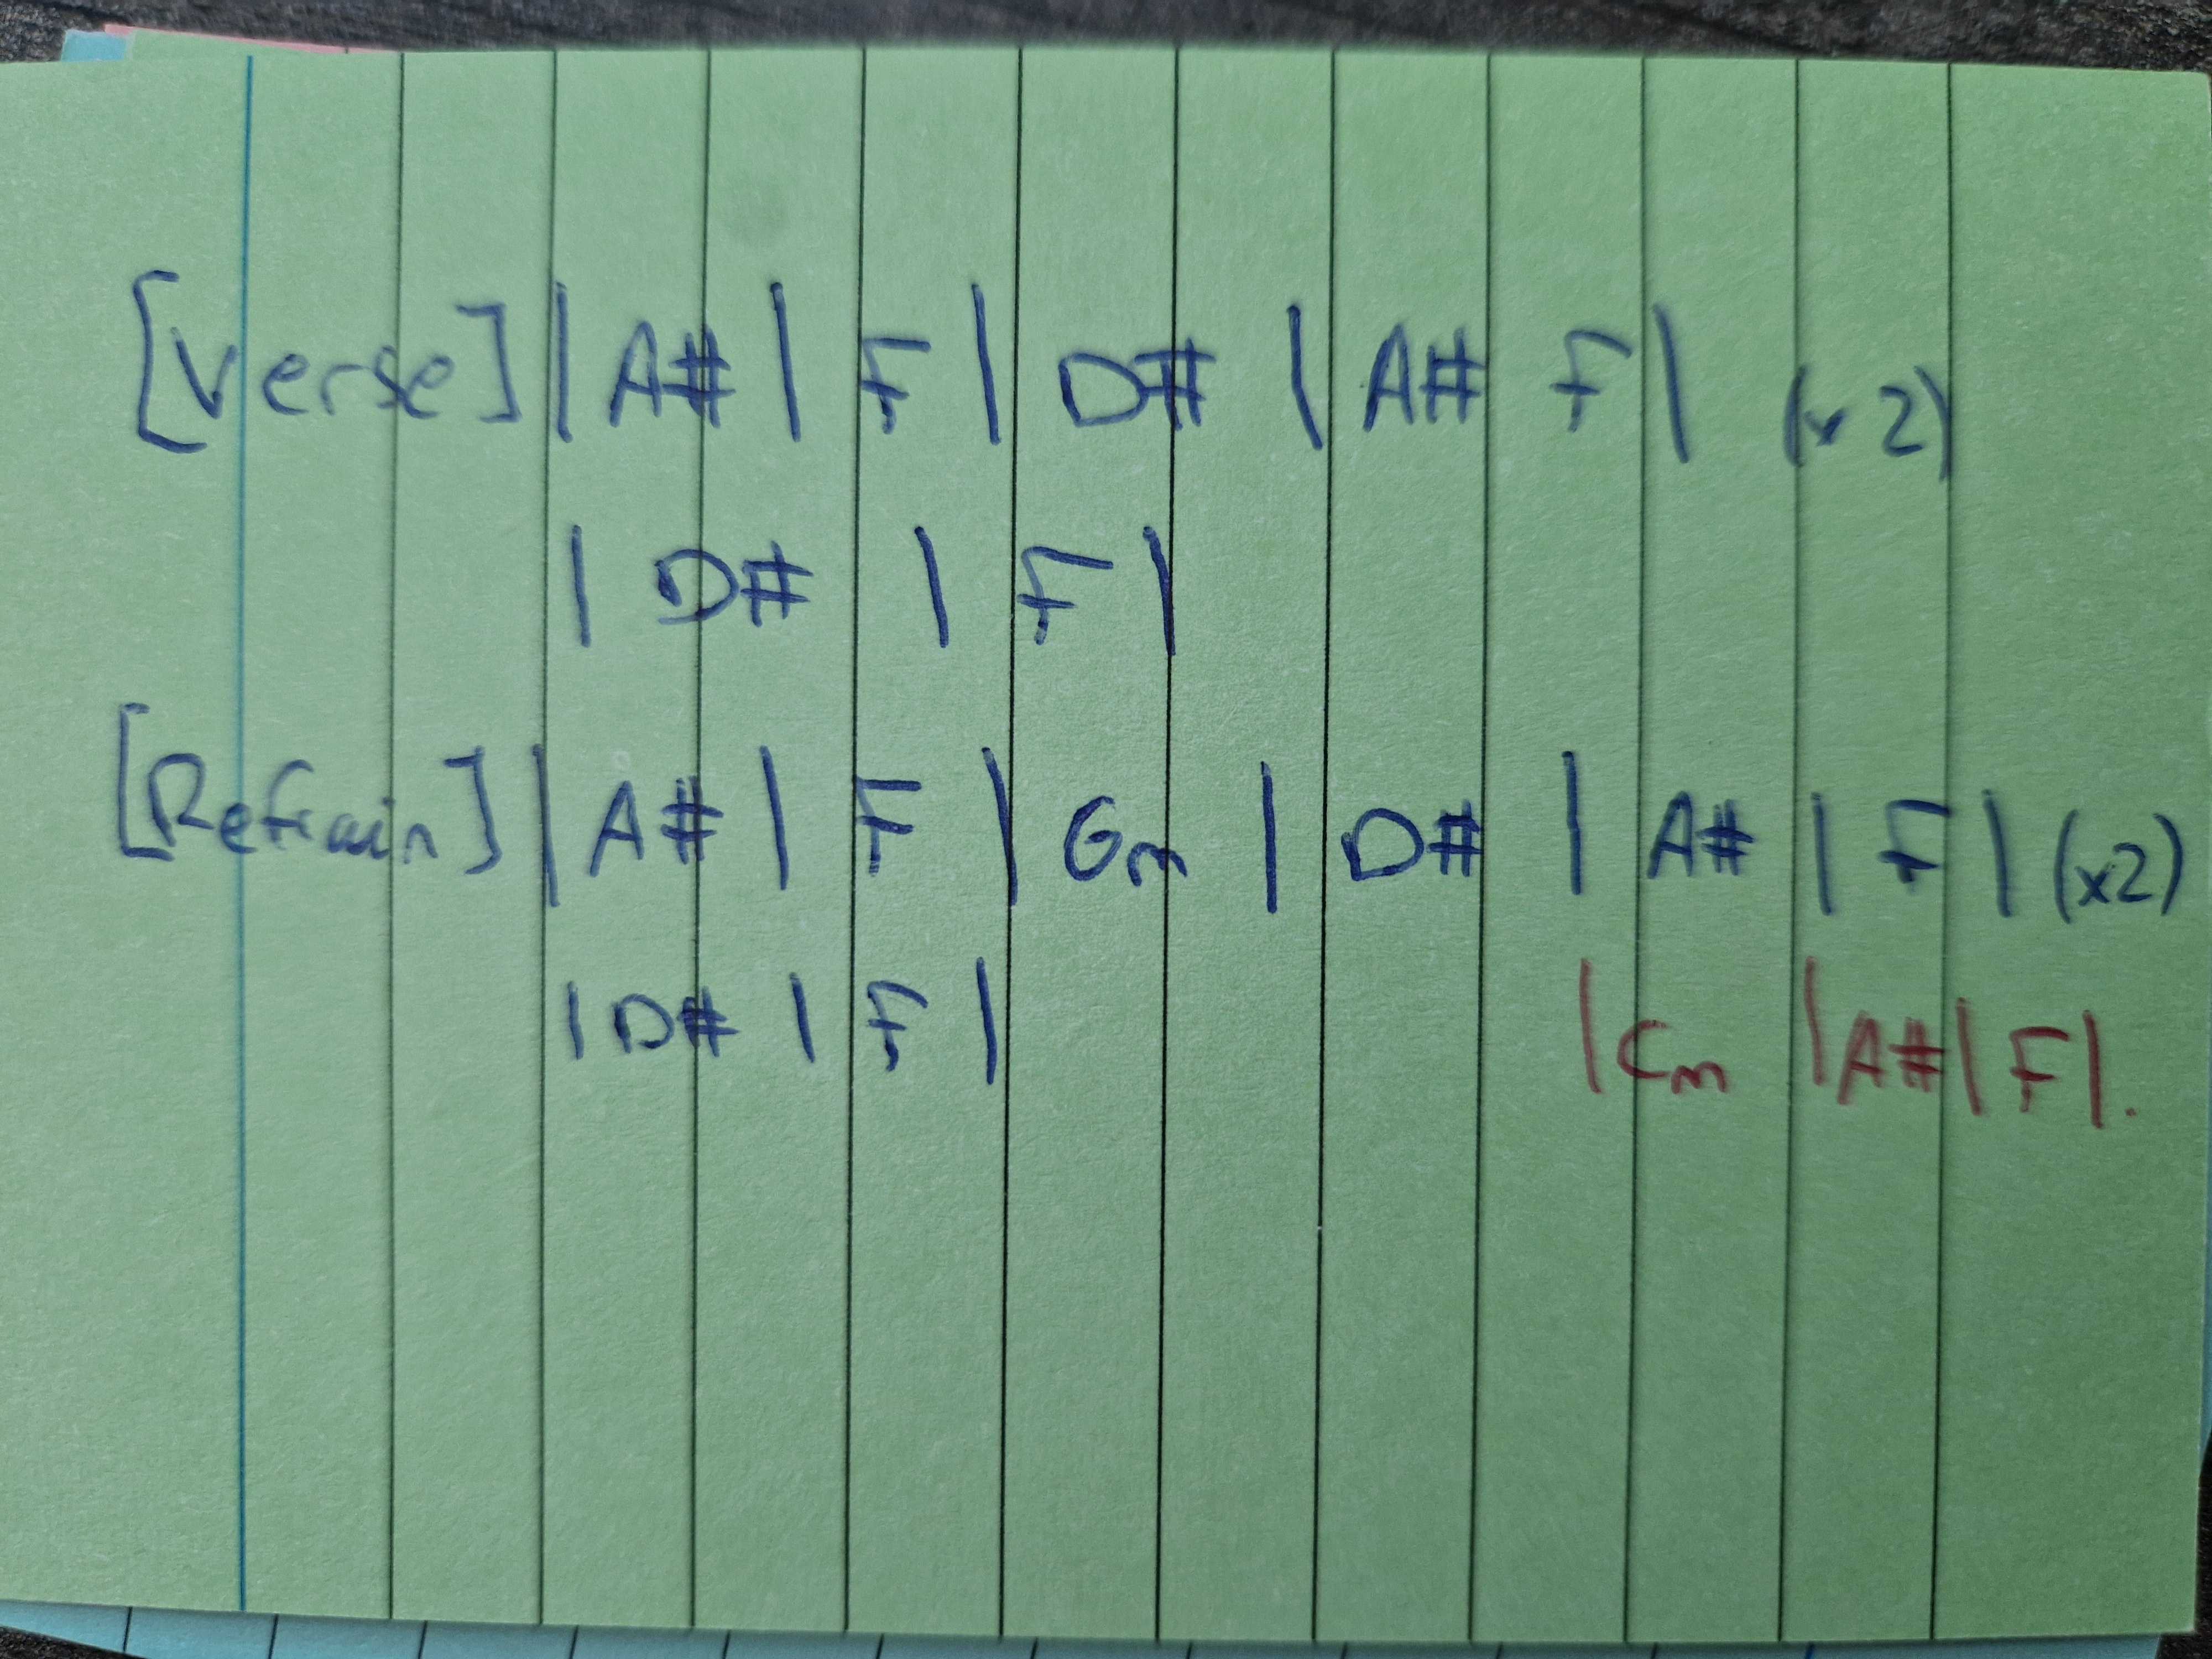 [Verse] | A# | F | D# | A# F | (x2)
| D# | F |
[Refrain] | A# | F | Gm | D# | A# | F | (x2)
| D# | F | | Cm | A# | F |.